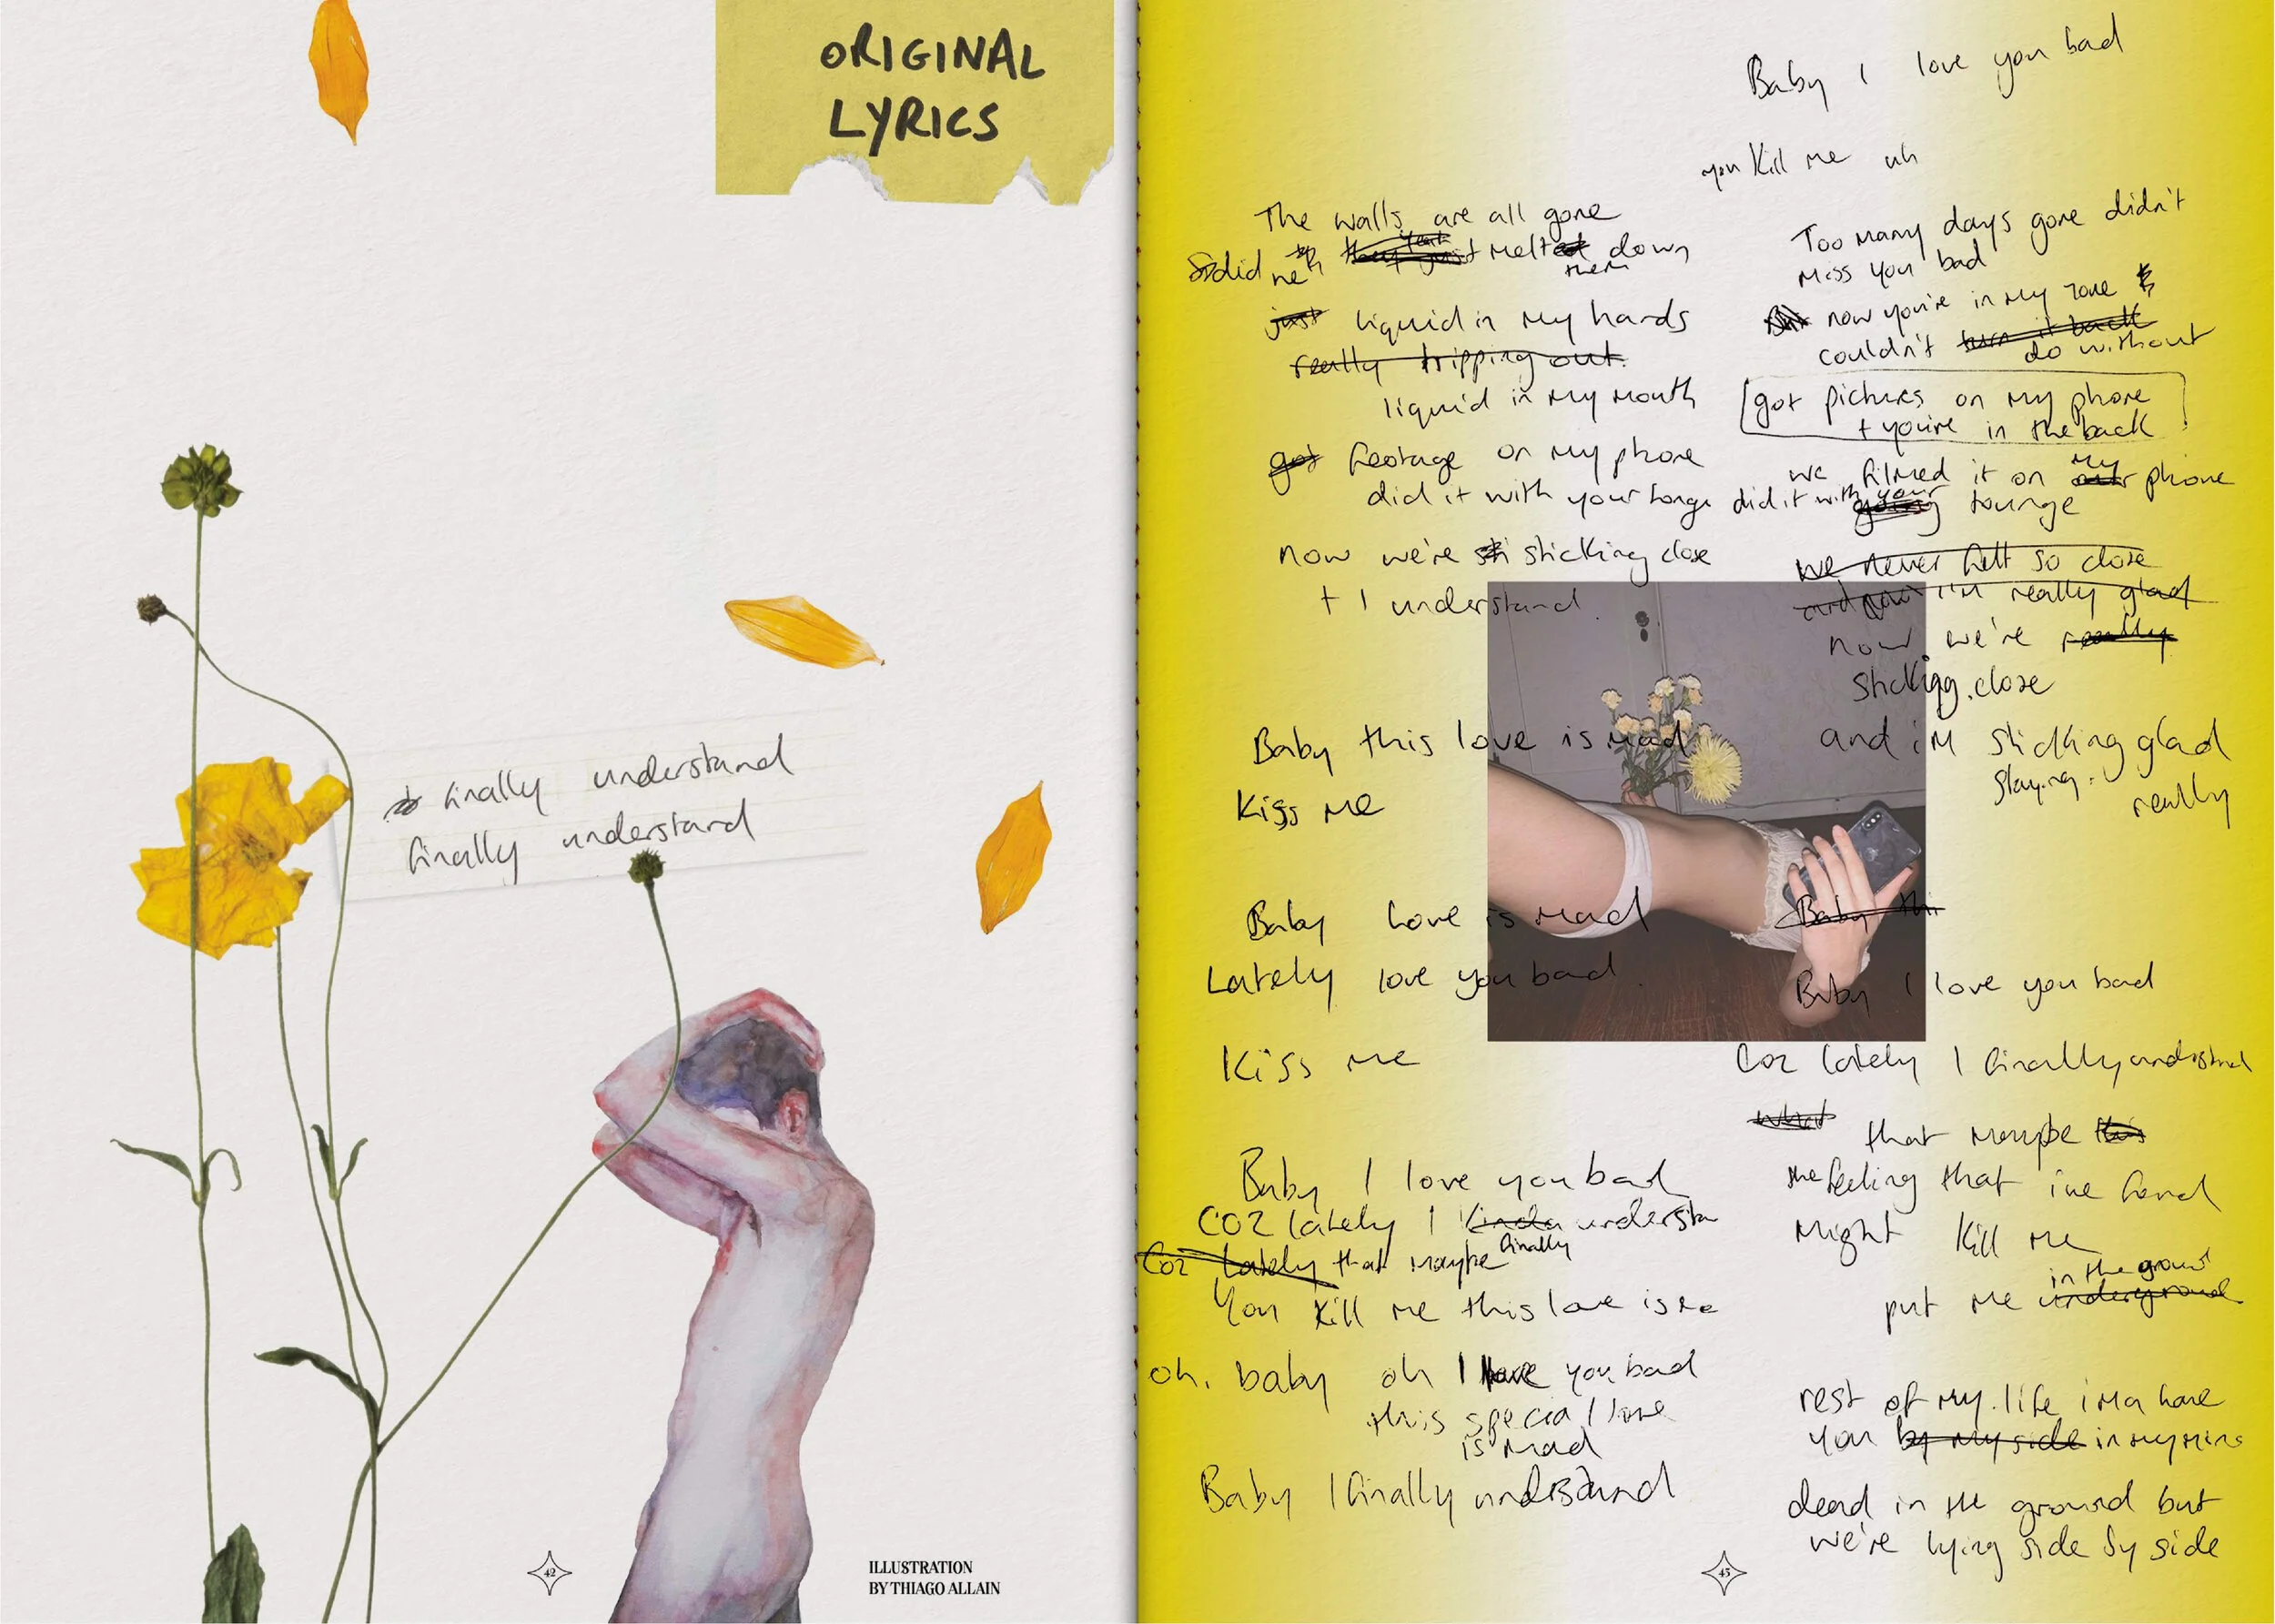 ORIGINAL
LYRICS
finally understand
finally understand
42
ILLUSTRATION
BY THIAGO ALLAIN
Baby I love you bad
you Kill me uh
The walls are all gone
So did we just melted down
them
just liquid in my hands
really tripping out.
liquid in my mouth
got footage on my phone
did it with your tonge
now we're sticking close
+ I understand.
Baby this love is mad
Kiss me
Baby love is mad
Lately love you bad.
Kiss me
Baby I love you bad
CO2 lately I kinda understa
finally
Coz lately that maybe
You Kill me this love is
oh. baby oh I have you bad
this special love
is mad
Baby I finally understand
Too many days gone didn't
miss you bad
now you're in my zone &
couldn't turn it back
do without
got pictures on my phone
+ you're in the back
my
we filmed it on our phone
your
did it with going tounge
we never felt so close
and now i'm really glad
now we're really
sticking.close
and i'm sticking glad
staying.
really
Baby thi
Baby I love you bad
Coz lately I finally understand
what
that maybe this
the feeling that ive found
Might Kill me
in the ground
put me underground
rest of my life ima have
you by my side in my mind
dead in the ground but
we're lying side by side
43